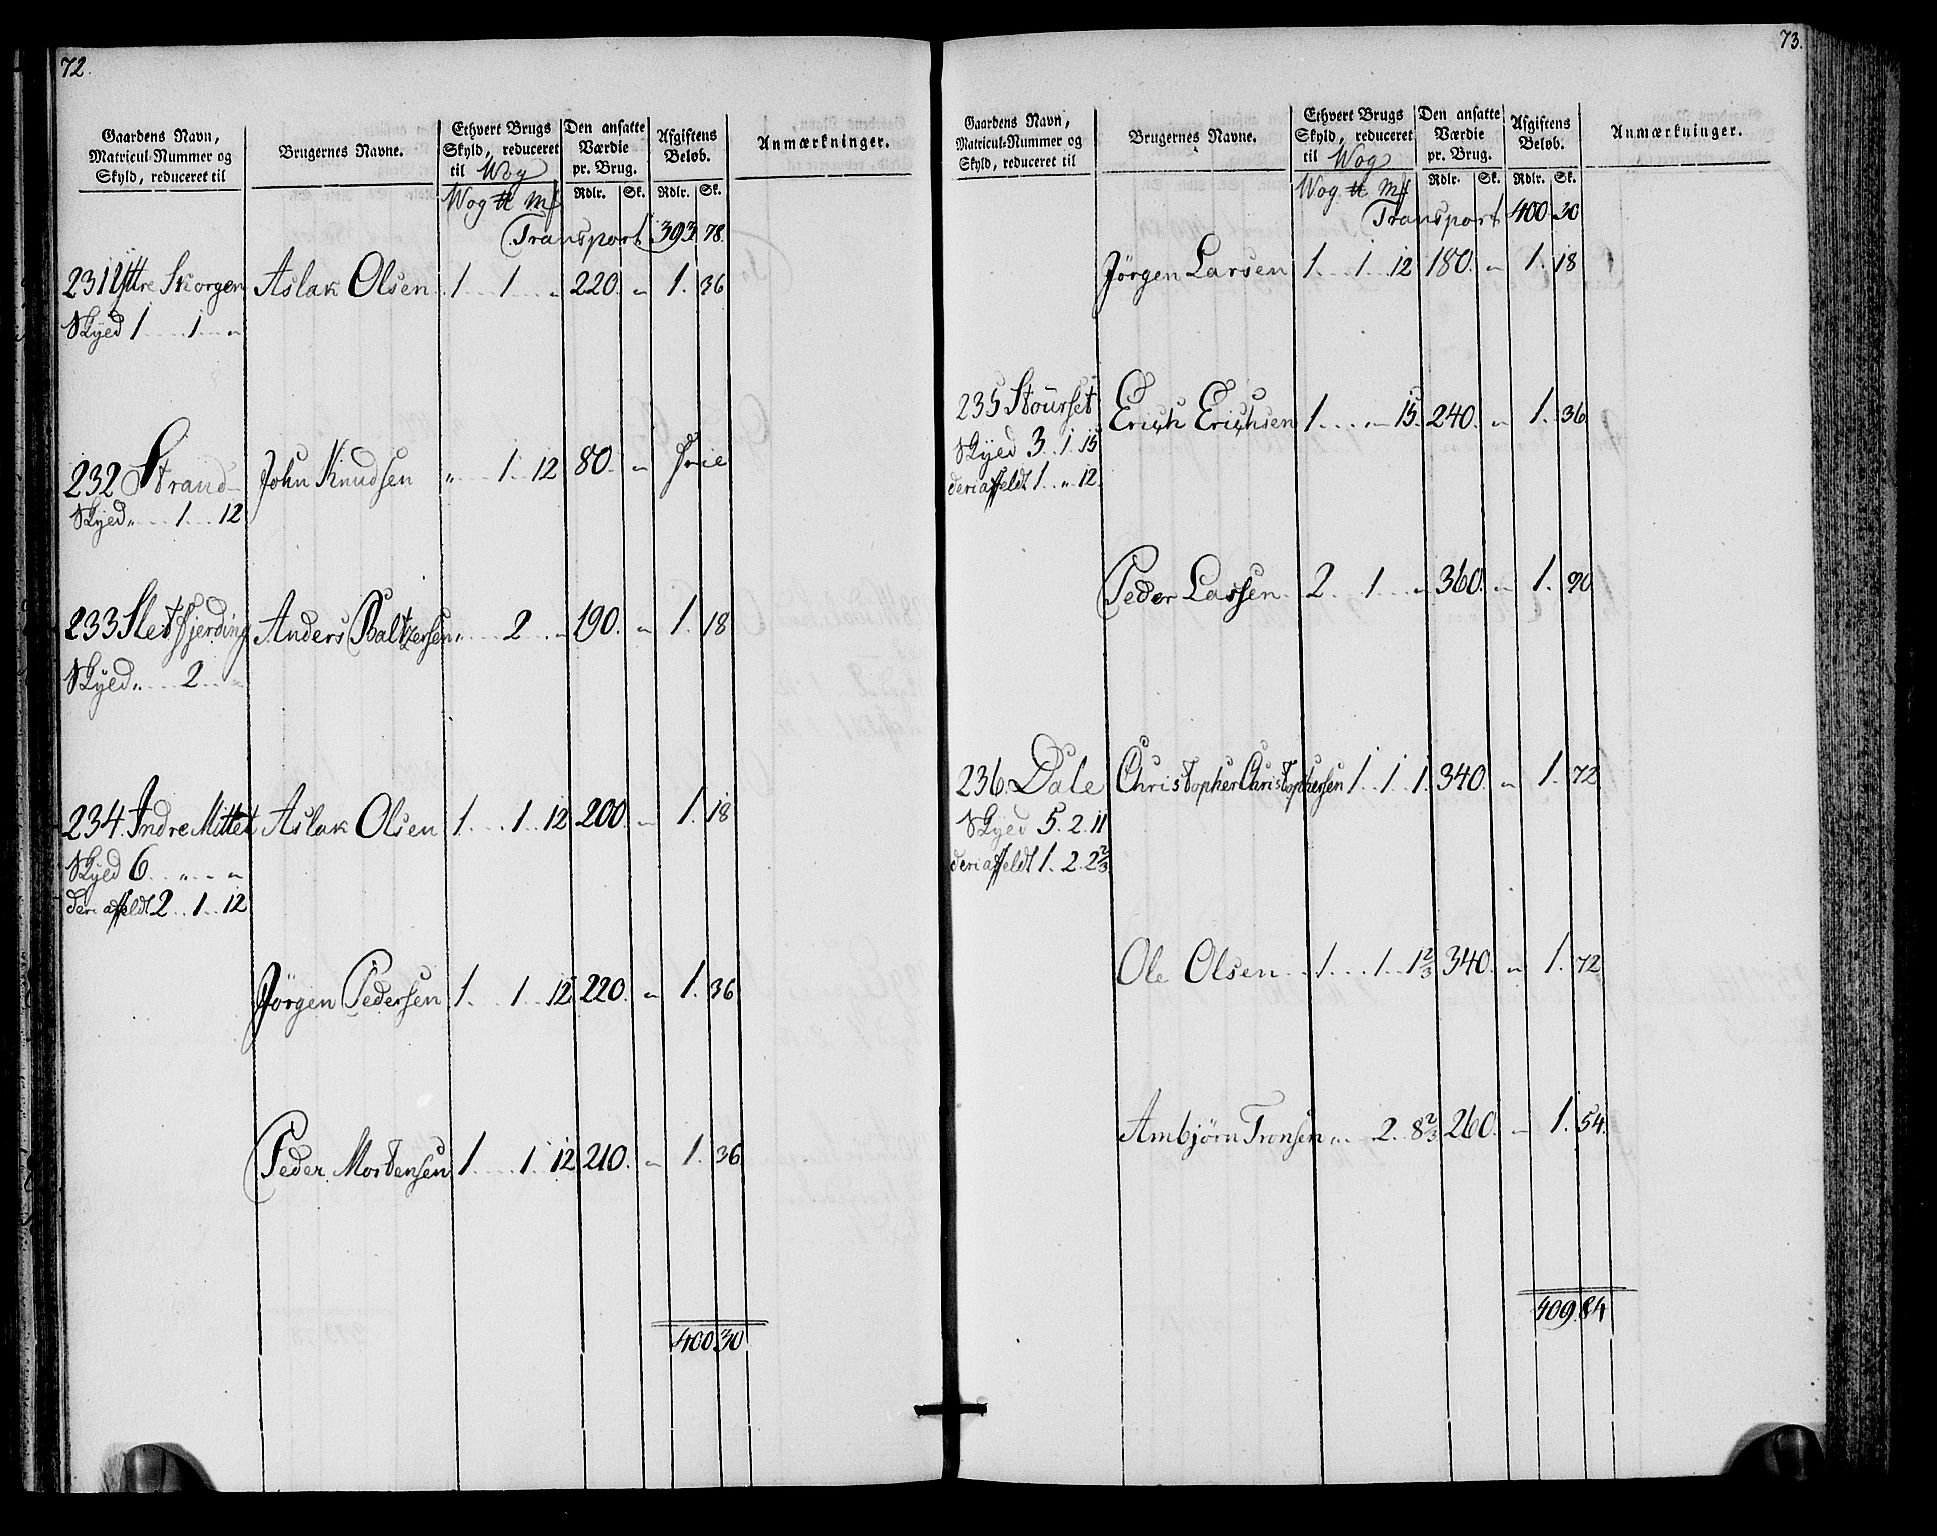 72.
Gaardens Navn, Matricul-Nummer og Skyld, reduceret til
Brugernes Navne.
Ethvert Brugs Skyld, reduceret til Wog
Den ansatte Værdie pr. Brug.
Afgiftens Beløb.
Anmærkninger.
Wog ℔ Mk Rdlr. Sk. Rdlr. Sk.
Transport 393 78.
231 Yttre Skorgen Aslak Olsen 1 .... 1 ... „ 220. „ 1. 36
Skyld 1 .... 1 ... „
232 Strand John Knudsen „ .... 1 .. 12 80. „ frie
Skyld „ .... 1 ... 12
233 Sletfjerding Anders Baltzersen „ .... 2 ... „ 190. „ 1. 18
Skyld „ .... 2 ... „
234. Indre Mittet Aslak Olsen 1 ... 1 .. 12 200 „ 1. 18
Skyld 6 .. „ .. „
deri affeldt 2 .. 1 .. 12
Jörgen Pedersen 1 ... 1 .. 12 220. „ 1. 36
Peder Mortensen 1 .... 1. 12 210. „ 1. 36
400 30
73.
Gaardens Navn, Matricul-Nummer og Skyld, reduceret til
Brugernes Navne.
Ethvert Brugs Skyld, reduceret til Wog
Den ansatte Værdie pr. Brug.
Afgiftens Beløb.
Anmærkninger.
Wog ℔ Mk Rdlr. Sk. Rdlr. Sk.
Transport 400 30
Jörgen Larsen 1 ... 1 .. 12 180. „ 1. 18
235 Stourset Erich Erichsen 1 .... „ 15. 240. „ 1. 36
Skyld 3 .. 1 .. 15
deri affeldt 1 .. „ .. 12.
Peder Larssen 2 ... 1 ... „ 360. „ 1. 90
236. Dale Christopher Christophersen 1 .. 1 .. 1. 340. „ 1. 72
Skyld 5. 2. 11
deri affeldt 1. 2. 2 2/3
Ole Olsen 1 .... 1 .. 1 2/3 340. „ 1. 72
Ambjörn Tronsen „ .. 2 .. 8 2/3 260. „ 1. 54.
409. 84